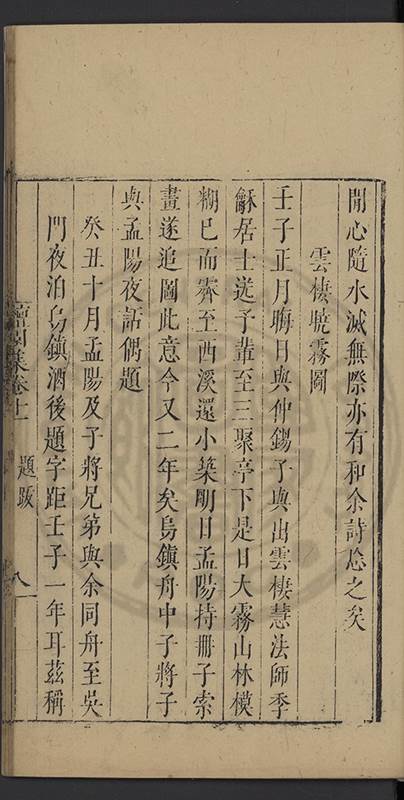 閒心隨水滅無際亦有和余詩忘之矣
雲棲曉霧圖
壬子正月晦日與仲錫子與出雲棲慧法師季
龢居士送予輩至三聚亭下是日大霧山林模
糊已而霽至西溪還小築明日孟陽持冊子索
畫遂追圖此意今又二年矣烏鎮舟中子將子
與孟陽夜話偶題
癸丑十月孟陽及子將兄弟與余同舟至吳
門夜泊烏鎮酒後題字距壬子一年耳茲稱
檀園集卷十一
題跋
八